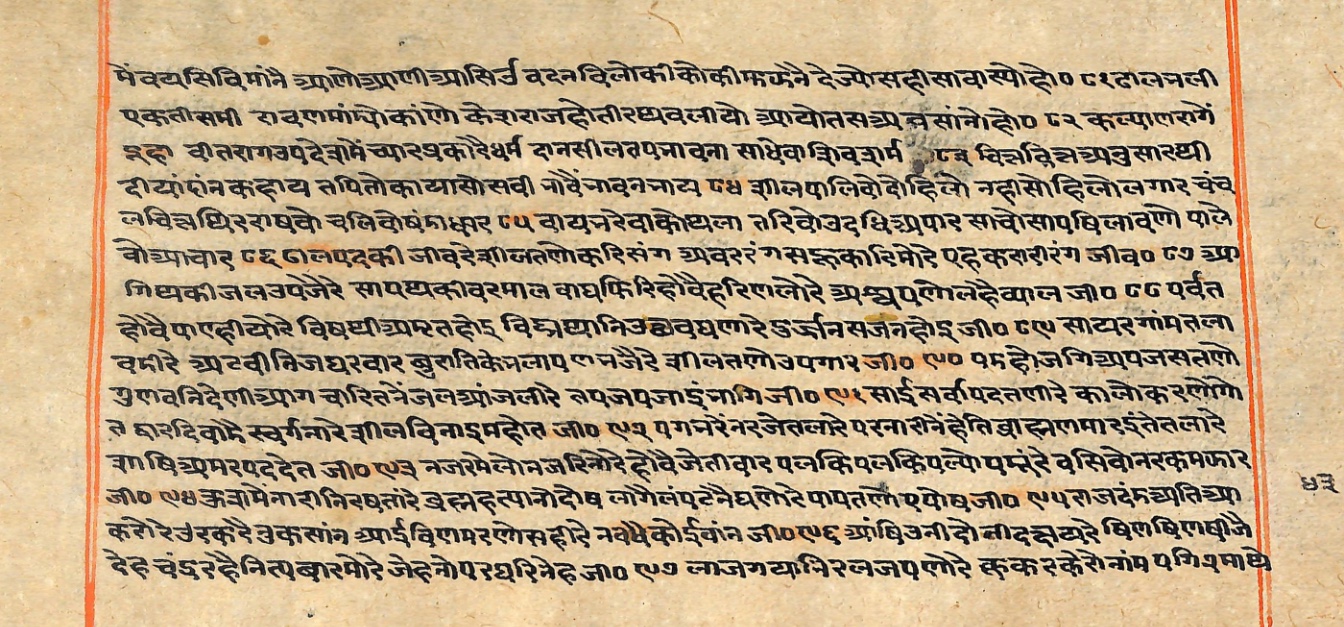 में वयसिविमांनै आणोआणीआसिर्व वदनविलोकीकोकीमकनै देज्योसहीसावास्योहो० ८१ ढालभली
एकतीसमी रावणमांग्योकांणो केशराजहोतीरथवलीयो आयोतसअन्नसांनोहो० ८२ कल्याणरागें
दूहा वीतरागउपदेशमें च्यारप्रकारैधर्म दानसीलतपभावना साधेवाशिवशर्म ८३ वित्तवित्तअनुसारथी
दीयांदांनकहाय तपितोकायासोसवी भावैंभावनभाय ८४ शीलपालिवोदोहिलो नहीसोहिलोलगार चंच
लचित्तथिरराषवो चलिवोषंमाधार ८५ वायभरेवाकोथला तरिवोउदधिअपार साचोसापषिलावणो पाले
वोआचार ८६ ढालपदकी जीवरेशीलतणोकरिसंग अवररंगसहुकारिमोरे एहकरारीरंग जीव० ८७ आ
गिथकीजलउपजेरे सापथकीवरमाल वाघफिरिहोवैहरिणलोरे अश्वपणोलहैव्याल जी० ८८ पर्वत
होवैपाणहीयोरे विषथीअमृतहोइ विघ्नथानिउछवघणारे दुर्जनसजनहोइ जी० ८९ सायरगांमतला
वमीरे अटवीनिजघरवार बुरातिकेभलापणभजैरे शीलतणोउपगार जी० ९० पमहोजगिअपजसतणो
गुणवनिदेणीआग चारितनेंजलआंजलीरे तपजपजाइंभागि जी० ९१ साईसर्वापदतणीरे कालोकरणोगो
त द्वारदिवांमै स्वर्गनोरे शीलविनाइमहोत जी० ९२ पगभरेंनरजेतलारे परनारीनेंहेति ब्राह्मणमारइंतेतलारे
साषिअमरपददेत जी० ९३ नजरमेलोनजरिनोरे होवैजेतीवार पलकिपलकिपल्योपमुंरे वसिवोनरकमझार
जी० ९४ कुशमेंनारीनिरषतांरे ब्रह्महत्यानोदोष लागैलंपटनैघणोरे पापतणोएपोष जी० ९५ राजदंमअतिआ
करोरे उरकरेनुकसांन आईविणमरणोसहीरे नवधैकोईवांन जी० ९६ आंषिउनीदोनीदस्युरे षिणषिणषीजै
देह चंद्ररहैनित्यबारमोरे जेहनोपरघरिनेह जी० ९७ लाजगयानिरलजपणोरे कुकरकेरोनांम पगिपृमाथे
५३